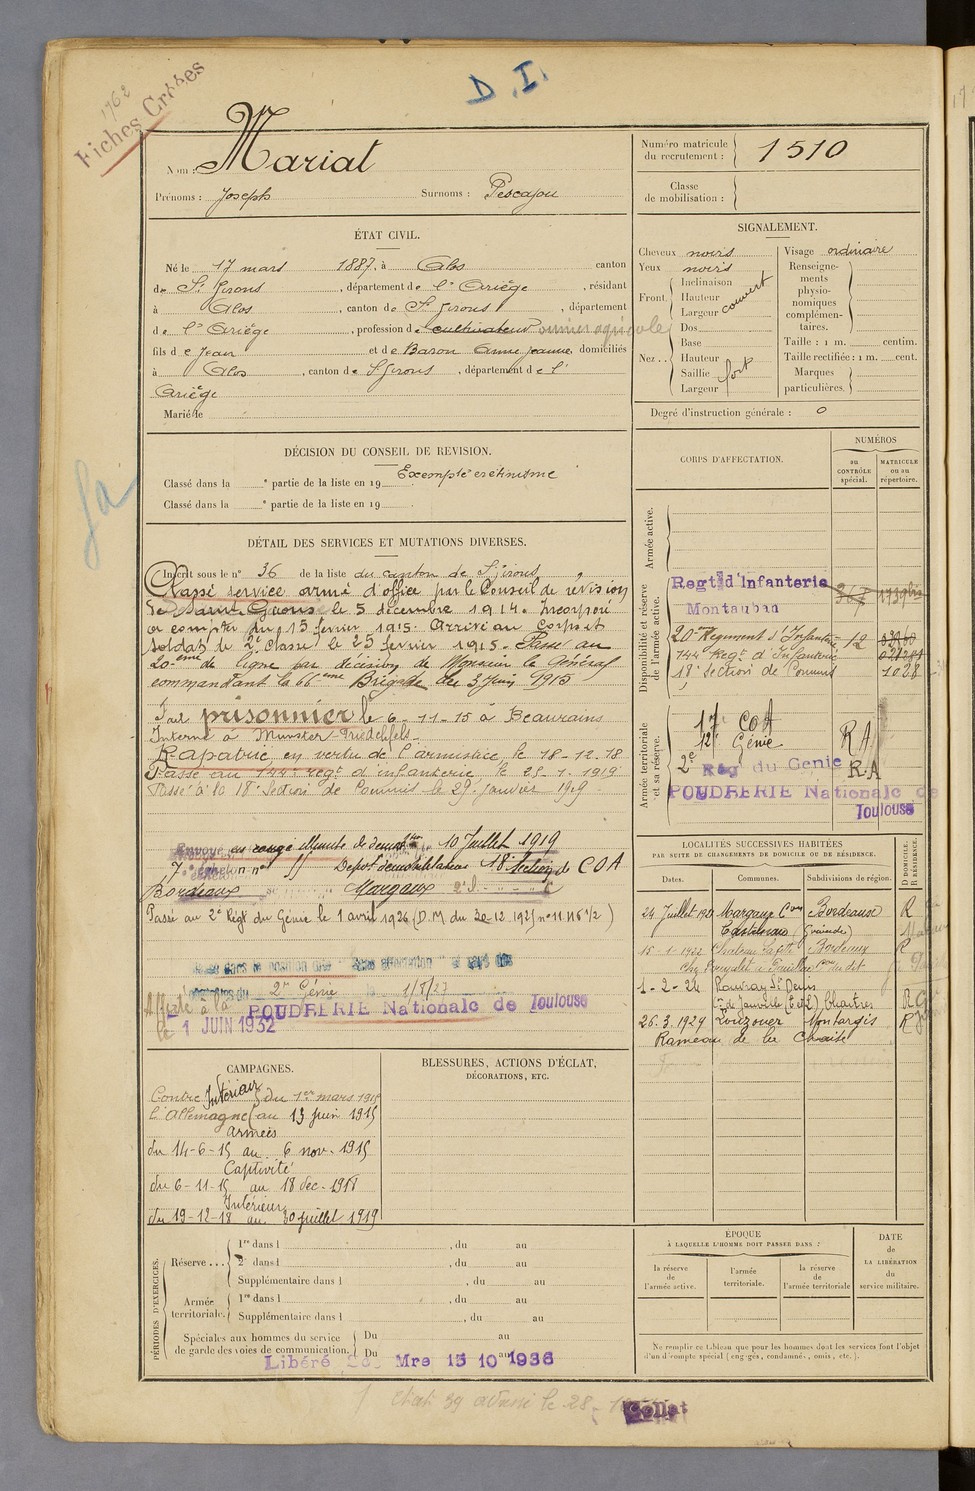 D.I.
1762
Fiches Créées
Nom : Mariat
Prénoms : Joseph Surnoms : Pescajou
Numéro matricule du recrutement : 1510
Classe de mobilisation :
ÉTAT CIVIL.
Né le 17 mars 1887, à Alos canton
de St Girons, département de l'Ariège, résidant
à Alos, canton de St Girons, département
de l'Ariège, profession de cultivateur ouvrier agricole
fils de Jean et de Baron Anne Jeanne domiciliés
à Alos, canton de St Girons, département de l'
Ariège
Marié le
SIGNALEMENT.
Cheveux noirs
Yeux noirs
Front. Inclinaison
Hauteur
Largeur
couvert
Nez.. Dos
Base
Hauteur
Saillie
Largeur
fort
Visage ordinaire
Renseignements physionomiques complémentaires.
Taille : 1 m. centim.
Taille rectifiée : 1 m. cent.
Marques particulières.
Degré d'instruction générale : 0
DÉCISION DU CONSEIL DE REVISION.
Exempté crétinisme
Classé dans la e partie de la liste en 19
Classé dans la e partie de la liste en 19
DÉTAIL DES SERVICES ET MUTATIONS DIVERSES.
Inscrit sous le n° 36 de la liste du canton de St Girons
Classé service armé d'office par le Conseil de révision
de Saint-Girons le 5 décembre 1914. Incorporé
à compter du 15 février 1915. Arrivé au corps et
soldat de 2e classe le 25 février 1915. Passé au
20ème de ligne par décision de Monsieur le Général
commandant la 66ème Brigade du 3 juin 1915
Fait prisonnier le 6-11-15 à Beaurains
Interné à Munster Friedrichfels
Rapatrié en vertu de l'armistice le 18-12-18
Passé au 144e regt d'infanterie le 28-1-1919
Passé à la 18e Section de Commis le 29 janvier 1919
Envoyé en congé illimité de démob 10 Juillet 1919
7e échelon n° Dépot démobilisateur 18e Section de COA
Bordeaux Margaux
Passé au 2e Régt du Génie le 1 avril 1926 (D.M. du 30-12-1925 n° 11.116 1/2)
Classé dans la position dite "Sans affectation"
2e Génie 1/5/27
Affecté à la POUDRERIE Nationale de Toulouse
le 1 JUIN 1932
CORPS D'AFFECTATION.
NUMÉROS
au CONTRÔLE spécial.
MATRICULE ou au répertoire.
Armée active.
Disponibilité et réserve de l'armée active.
Regt d'Infanterie
Montauban
20ème Régiment d'Infanterie 12
144 Régt d'Infanterie
18e Section de Commis 1028
Armée territoriale et sa réserve.
17e COA
12e Génie RA
2e Rég du Genie RA
POUDRERIE Nationale de
Toulouse
LOCALITÉS SUCCESSIVES HABITÉES
PAR SUITE DE CHANGEMENTS DE DOMICILE OU DE RÉSIDENCE.
Dates. Communes. Subdivisions de région. D DOMICILE. R RÉSIDENCE.
24 Juillet Margaux Con Bordeaux R
Castelnau (Gironde)
15-1-1922 Chateau Lafitte Bordeaux R
1-2-24 Rouvray St Denis
Con de Janville (E et L) Chartres R
26.3.1929 Louzouer Montargis R
Rameau de la Chaise
CAMPAGNES.
Contre l'Allemagne
Intérieur
du 1er mars 1915
au 13 juin 1915
Armées
du 14-6-15 au 6 nov. 1915
Captivité
du 6-11-15 au 18 dec. 1918
Intérieur
du 19-12-18 au 30 juillet 1919
BLESSURES, ACTIONS D'ÉCLAT,
DÉCORATIONS, ETC.
PÉRIODES D'EXERCICES.
Réserve ... 1re dans l , du au
2e dans l , du au
Supplémentaire dans l , du au
Armée territoriale. 1re dans l , du au
Supplémentaire dans l , du au
Spéciales aux hommes du service de garde des voies de communication. Du au
Du au
Libéré Mre 15 10 1936
ÉPOQUE
À LAQUELLE L'HOMME DOIT PASSER DANS :
la réserve de l'armée active.
l'armée territoriale.
la réserve de l'armée territoriale
DATE de LA LIBÉRATION du service militaire.
Ne remplir ce tableau que pour les hommes dont les services font l'objet
d'un décompte spécial (engagés, condamnés, omis, etc.).
Collat